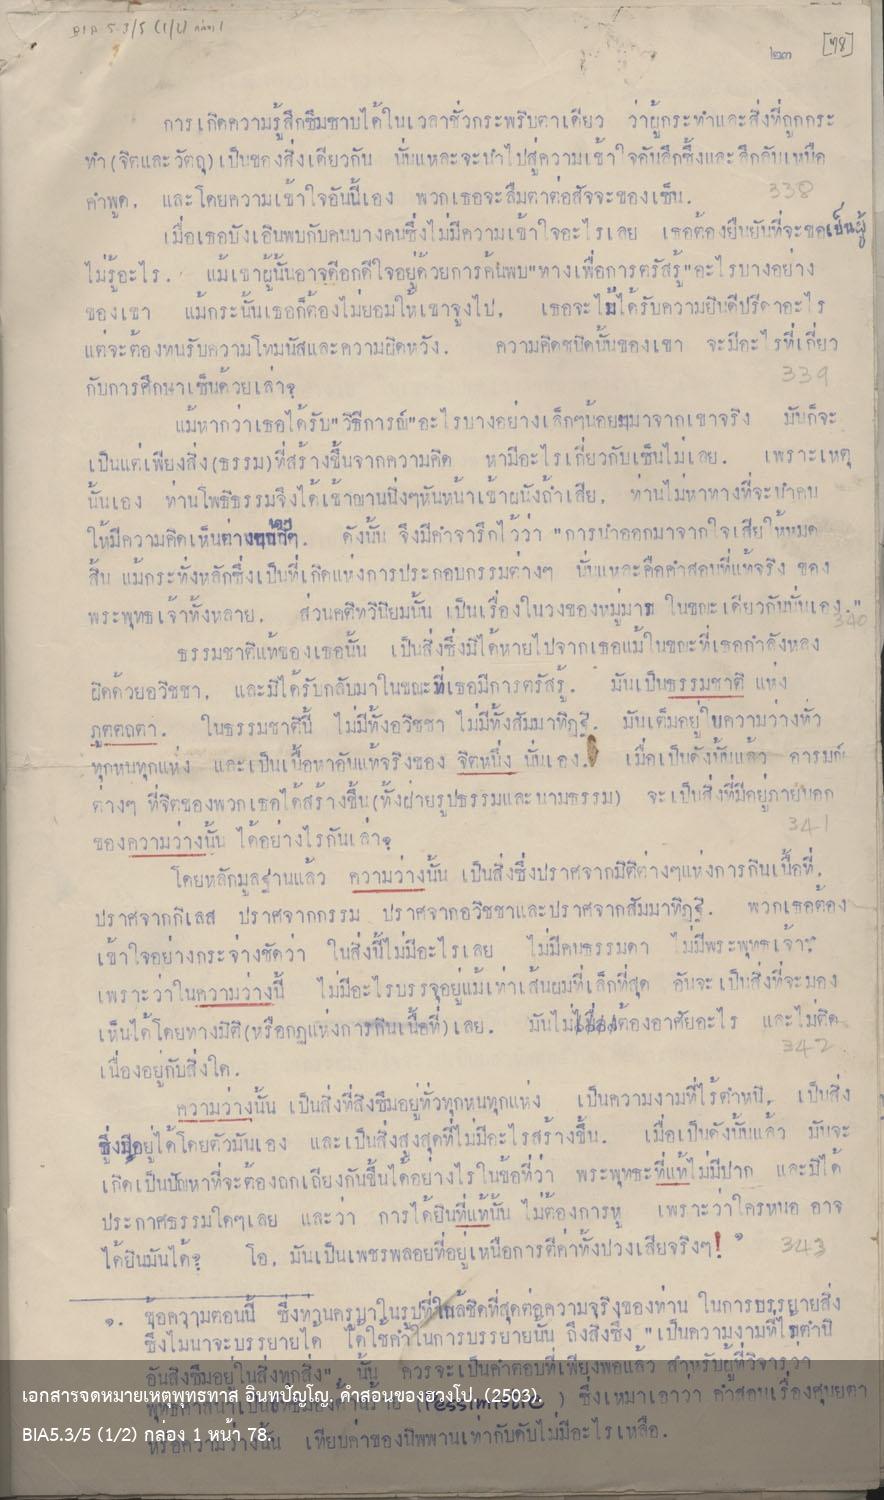 BIA 5.3/5 (1/2) กล่อง 1
๒๓ [78]
การเกิดความรู้สึกซึมซาบได้ในเวลาชั่วกระพริบตาเดียว ว่าผู้กระทำและสิ่งที่ถูกกระ
ทำ(จิตและวัตถุ)เป็นของสิ่งเดียวกัน นั่นแหละจะนำไปสู่ความเข้าใจอันลึกซึ้งและลึกลับเหนือ
คำพูด, และโดยความเข้าใจอันนี้เอง พวกเธอจะลืมตาต่อสัจจะของเซ็น.
338
เมื่อเธอบังเอิญพบกับคนบางคนซึ่งไม่มีความเข้าใจอะไรเลย เธอต้องยืนยันที่จะขอเป็นผู้
ไม่รู้อะไร. แม้เขาผู้นั้นอาจดีอกดีใจอยู่ด้วยการค้นพบ"ทางเพื่อการตรัสรู้"อะไรบางอย่าง
ของเขา แม้กระนั้นเธอก็ต้องไม่ยอมให้เขาจูงไป, เธอจะไม่ได้รับความยินดีปรีดาอะไร
แต่จะต้องทนรับความโทมนัสและความผิดหวัง. ความคิดชนิดนั้นของเขา จะมีอะไรที่เกี่ยว
กับการศึกษาเซ็นด้วยเล่า?
339
แม้หากว่าเธอได้รับ"วิธีการณ์"อะไรบางอย่างเล็กๆน้อยๆมาจากเขาจริง มันก็จะ
เป็นแต่เพียงสิ่ง(ธรรม)ที่สร้างขึ้นจากความคิด หามีอะไรเกี่ยวกับเซ็นไม่เลย. เพราะเหตุ
นั้นเอง ท่านโพธิธรรมจึงได้เข้าฌานนิ่งๆหันหน้าเข้าผนังถ้ำเสีย, ท่านไม่หาทางที่จะนำคน
ให้มีความคิดเห็นต่างๆ. ดังนั้น จึงมีคำจารึกไว้ว่า "การนำออกมาจากใจเสียให้หมด
สิ้น แม้กระทั่งหลักซึ่งเป็นที่เกิดแห่งการประกอบกรรมต่างๆ นั่นแหละคือคำสอนที่แท้จริง ของ
พระพุทธเจ้าทั้งหลาย, ส่วนคติทวินิยมนั้น เป็นเรื่องในวงของหมู่มาร ในขณะเดียวกันนั่นเอง."
340
ธรรมชาติแท้ของเธอนั้น เป็นสิ่งซึ่งมิได้หายไปจากเธอแม้ในขณะที่เธอกำลังหลง
ผิดด้วยอวิชชา, และมิได้รับกลับมาในขณะที่เธอมีการตรัสรู้. มันเป็นธรรมชาติ แห่ง
ภูตตถตา. ในธรรมชาตินี้ ไม่มีทั้งอวิชชา ไม่มีทั้งสัมมาทิฏฐิ. มันเต็มอยู่ในความว่างทั่ว
ทุกหนทุกแห่ง และเป็นเนื้อหาอันแท้จริงของ จิตหนึ่ง นั่นเอง. เมื่อเป็นดังนั้นแล้ว อารมณ์
ต่างๆ ที่จิตของพวกเธอได้สร้างขึ้น(ทั้งฝ่ายรูปธรรมและนามธรรม) จะเป็นสิ่งที่มีอยู่ภายนอก
ของความว่างนั้น ได้อย่างไรกันเล่า?
341
โดยหลักมูลฐานแล้ว ความว่างนั้น เป็นสิ่งซึ่งปราศจากมิติต่างๆแห่งการกินเนื้อที่,
ปราศจากกิเลส ปราศจากกรรม ปราศจากอวิชชาและปราศจากสัมมาทิฏฐิ. พวกเธอต้อง
เข้าใจอย่างกระจ่างชัดว่า ในสิ่งนี้ไม่มีอะไรเลย ไม่มีคนธรรมดา ไม่มีพระพุทธเจ้า;
เพราะว่าในความว่างนี้ ไม่มีอะไรบรรจุอยู่แม้เท่าเส้นผมที่เล็กที่สุด อันจะเป็นสิ่งที่จะมอง
เห็นได้โดยทางมิติ(หรือกฎแห่งการกินเนื้อที่)เลย. มันไม่ต้องอาศัยอะไร และไม่ติด
เนื่องอยู่กับสิ่งใด.
342
ความว่างนั้น เป็นสิ่งที่สิงซึมอยู่ทั่วทุกหนทุกแห่ง เป็นความงามที่ไร้ตำหนิ, เป็นสิ่ง
ซึ่งมีอยู่ได้โดยตัวมันเอง และเป็นสิ่งสูงสุดที่ไม่มีอะไรสร้างขึ้น. เมื่อเป็นดังนั้นแล้ว มันจะ
เกิดเป็นปัญหาที่จะต้องถกเถียงกันขึ้นได้อย่างไรในข้อที่ว่า พระพุทธะที่แท้ไม่มีปาก และมิได้
ประกาศธรรมใดๆเลย และว่า การได้ยินที่แท้นั้น ไม่ต้องการหู เพราะว่าใครหนอ อาจ
ได้ยินมันได้? โอ, มันเป็นเพชรพลอยที่อยู่เหนือการตีค่าทั้งปวงเสียจริงๆ! ๑
343
๑. ข้อความตอนนี้ ซึ่งท่านครูบาในรูปที่ใกล้ชิดที่สุดต่อความจริงของท่าน ในการบรรยายสิ่ง
ซึ่งไม่น่าจะบรรยายได้ ได้ใช้คำในการบรรยายนั้น ถึงสิ่งซึ่ง "เป็นความงามที่ไร้ตำหนิ
อันสิงซึมอยู่ในสิ่งทุกสิ่ง", นั้น ควรจะเป็นคำตอบที่เพียงพอแล้ว สำหรับผู้ที่วิจารว่า
พุทธศาสนาเป็นลัทธิมองด้านร้าย (Pessimistic) ซึ่งเหมาเอาว่า คำสอนเรื่องศุนยตา
หรือความว่างนั้น เทียบค่าของนิพพานเท่ากับดับไม่มีอะไรเหลือ.
เอกสารจดหมายเหตุพุทธทาส อินทปัญโญ. คำสอนของฮวงโป. (2503).
BIA5.3/5 (1/2) กล่อง 1 หน้า 78.